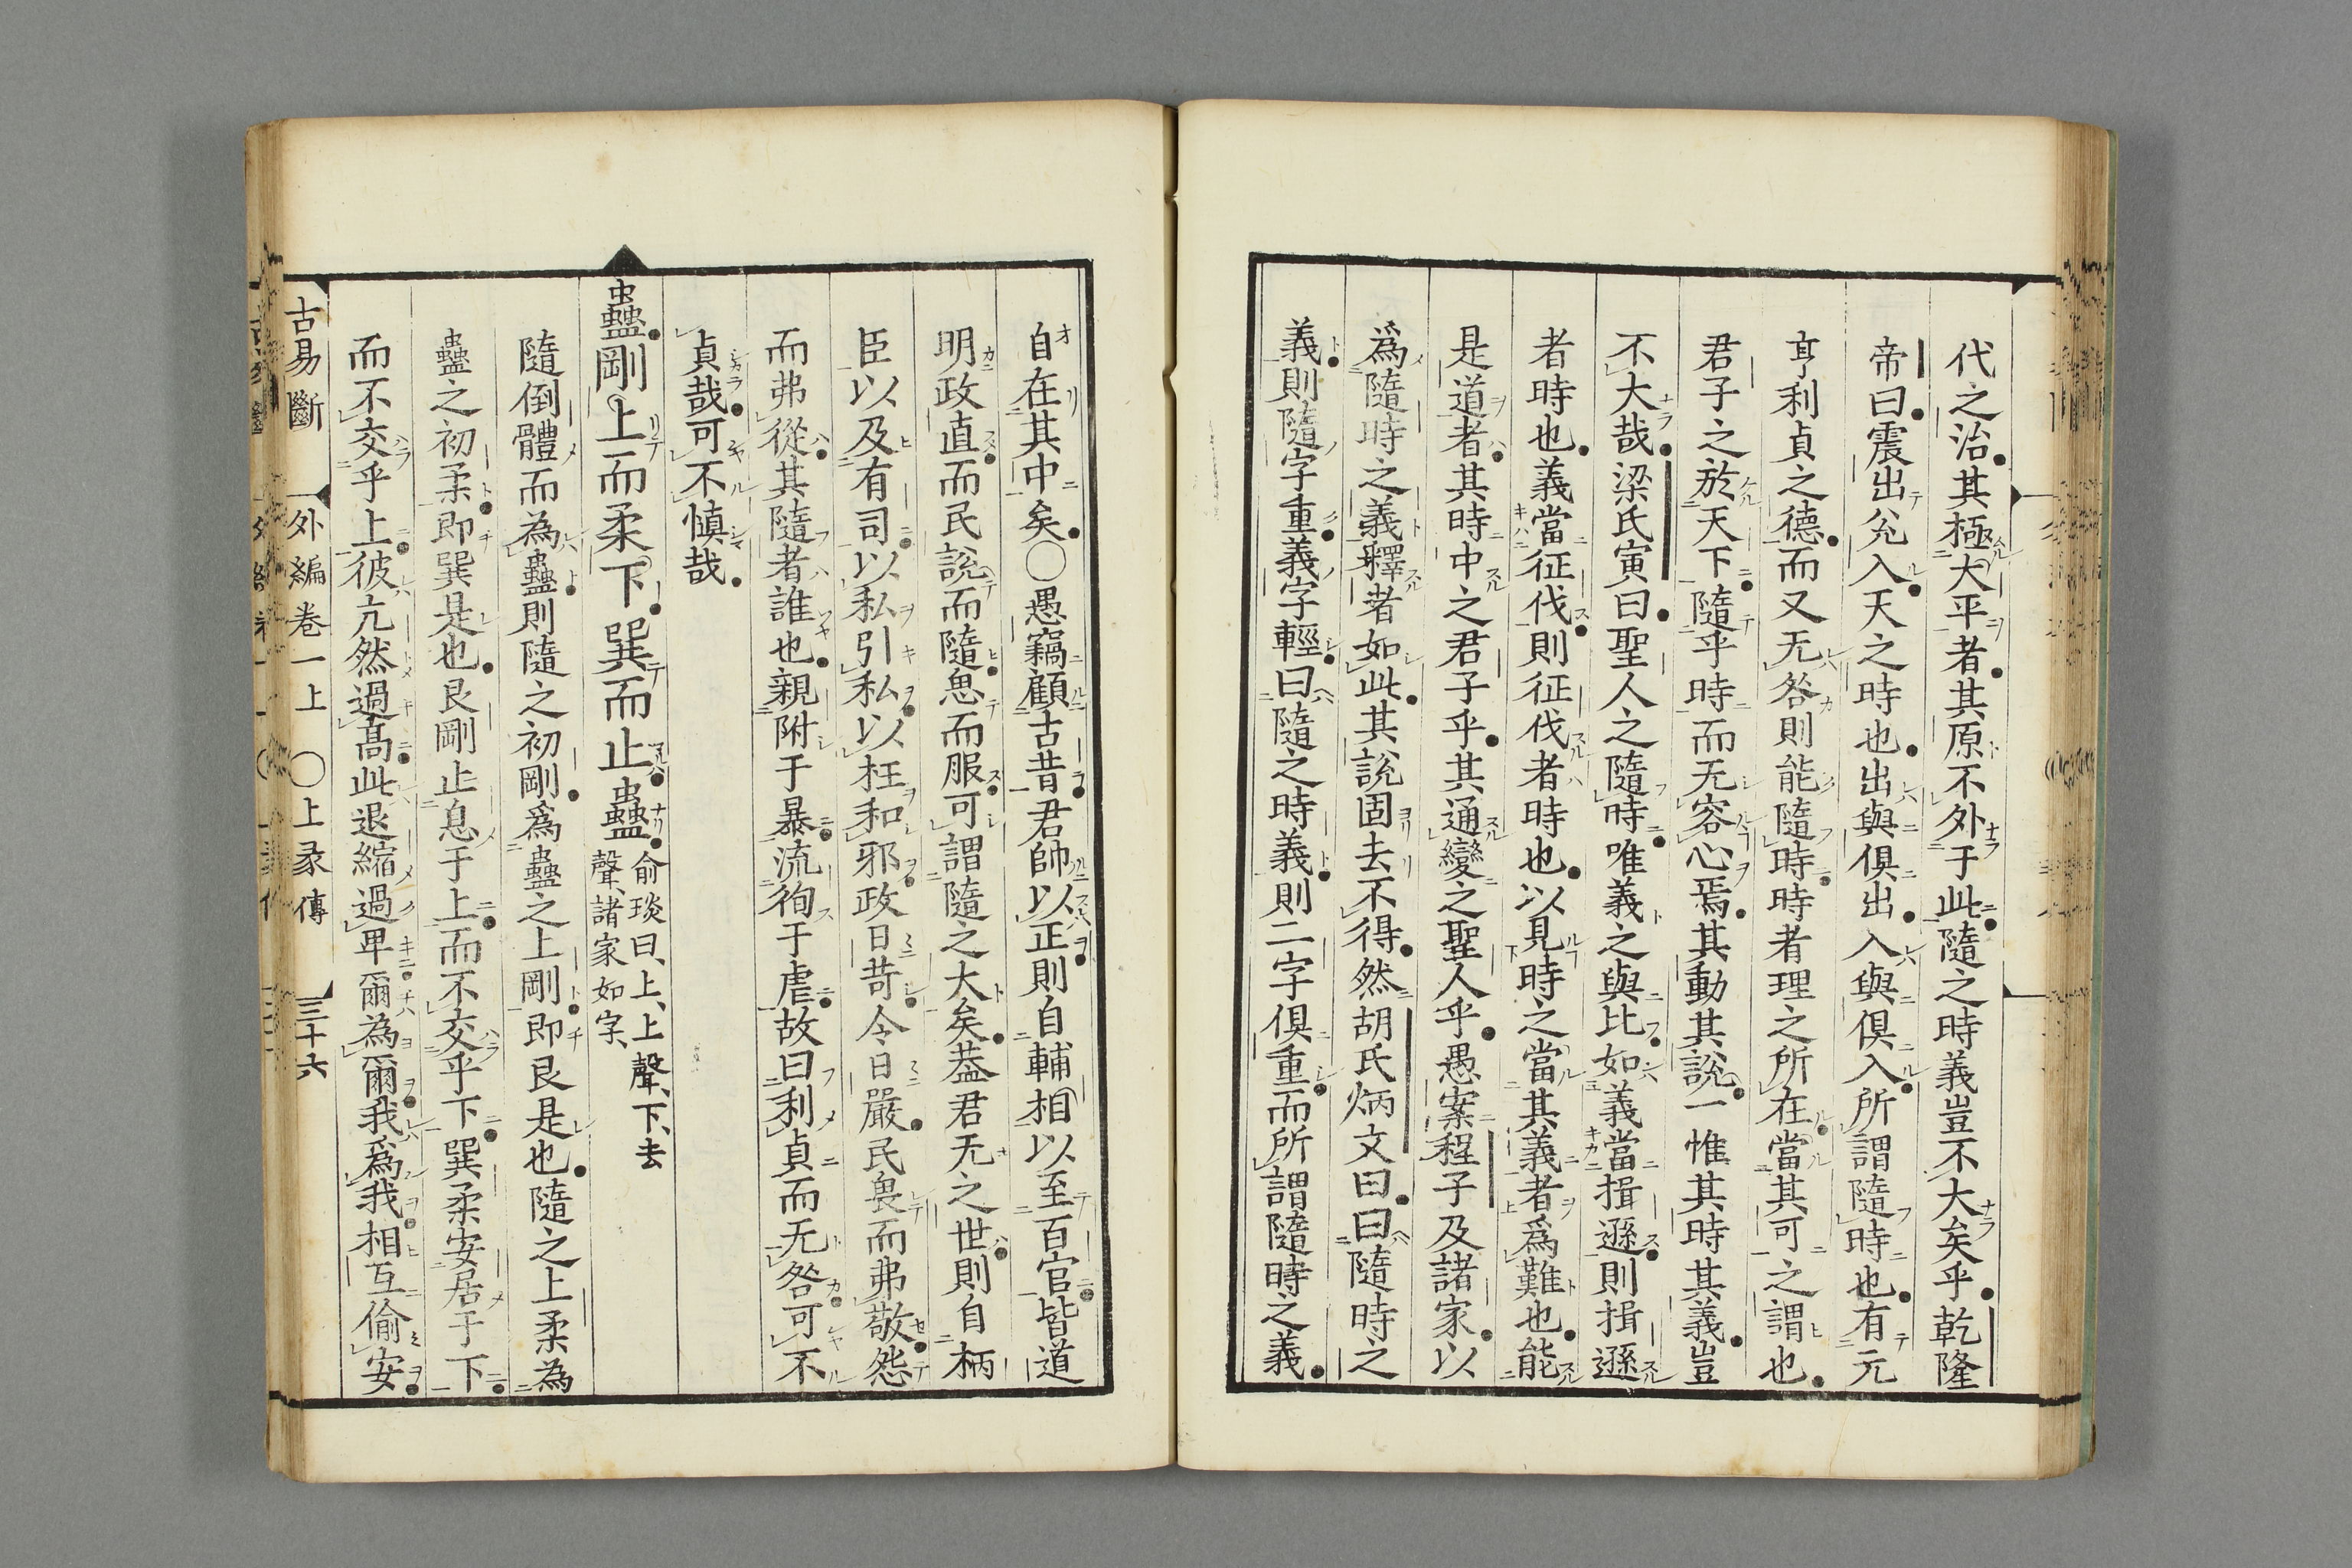 代之治其極大平者其原不外于此隨之時義豈不大矣乎乾隆
帝曰震出兊入天之時也出與俱出入與俱入所謂隨時也有元
亨利貞之德而又无咎則能隨時時者理之所在當其可之謂也
君子之於天下隨乎時而无容心焉其動其說一惟其時其義豈
不大哉梁氏寅曰聖人之隨時唯義之與比如義當揖遜則揖遜
者時也義當征伐則征伐者時也以見時之當其義者爲難也能
是道者其時中之君子乎其通變之聖人乎愚案程子及諸家以
爲隨時之義釋者如此其說固去不得然胡氏炳文曰曰隨時之
義則隨字重義字輕曰隨之時義則二字俱重而所謂隨時之義
自在其中矣〇愚竊顧古昔君帥以正則自輔相以至百官皆道
明政直而民說而隨恖而服可謂隨之大矣葢君无之世則自柄
臣以及有司以私引私以枉和邪政日苛令日嚴民畏而弗敬怨
而弗從其隨者誰也親附于暴流徇于虐故曰利貞而无咎可不
貞哉可不慎哉
蠱剛上而柔下巽而止蠱俞琰曰、上、上聲、下、去
聲、諸家如字、
隨倒體而為蠱則隨之初剛爲蠱之上剛即艮是也隨之上柔為
蠱之初柔即巽是也艮剛止息于上而不交乎下巽柔安居于下
而不交乎上彼亢然過高此退縮過卑爾為爾我爲我相互偷安
古易斷 外編卷一上 〇上彖傳 三十六